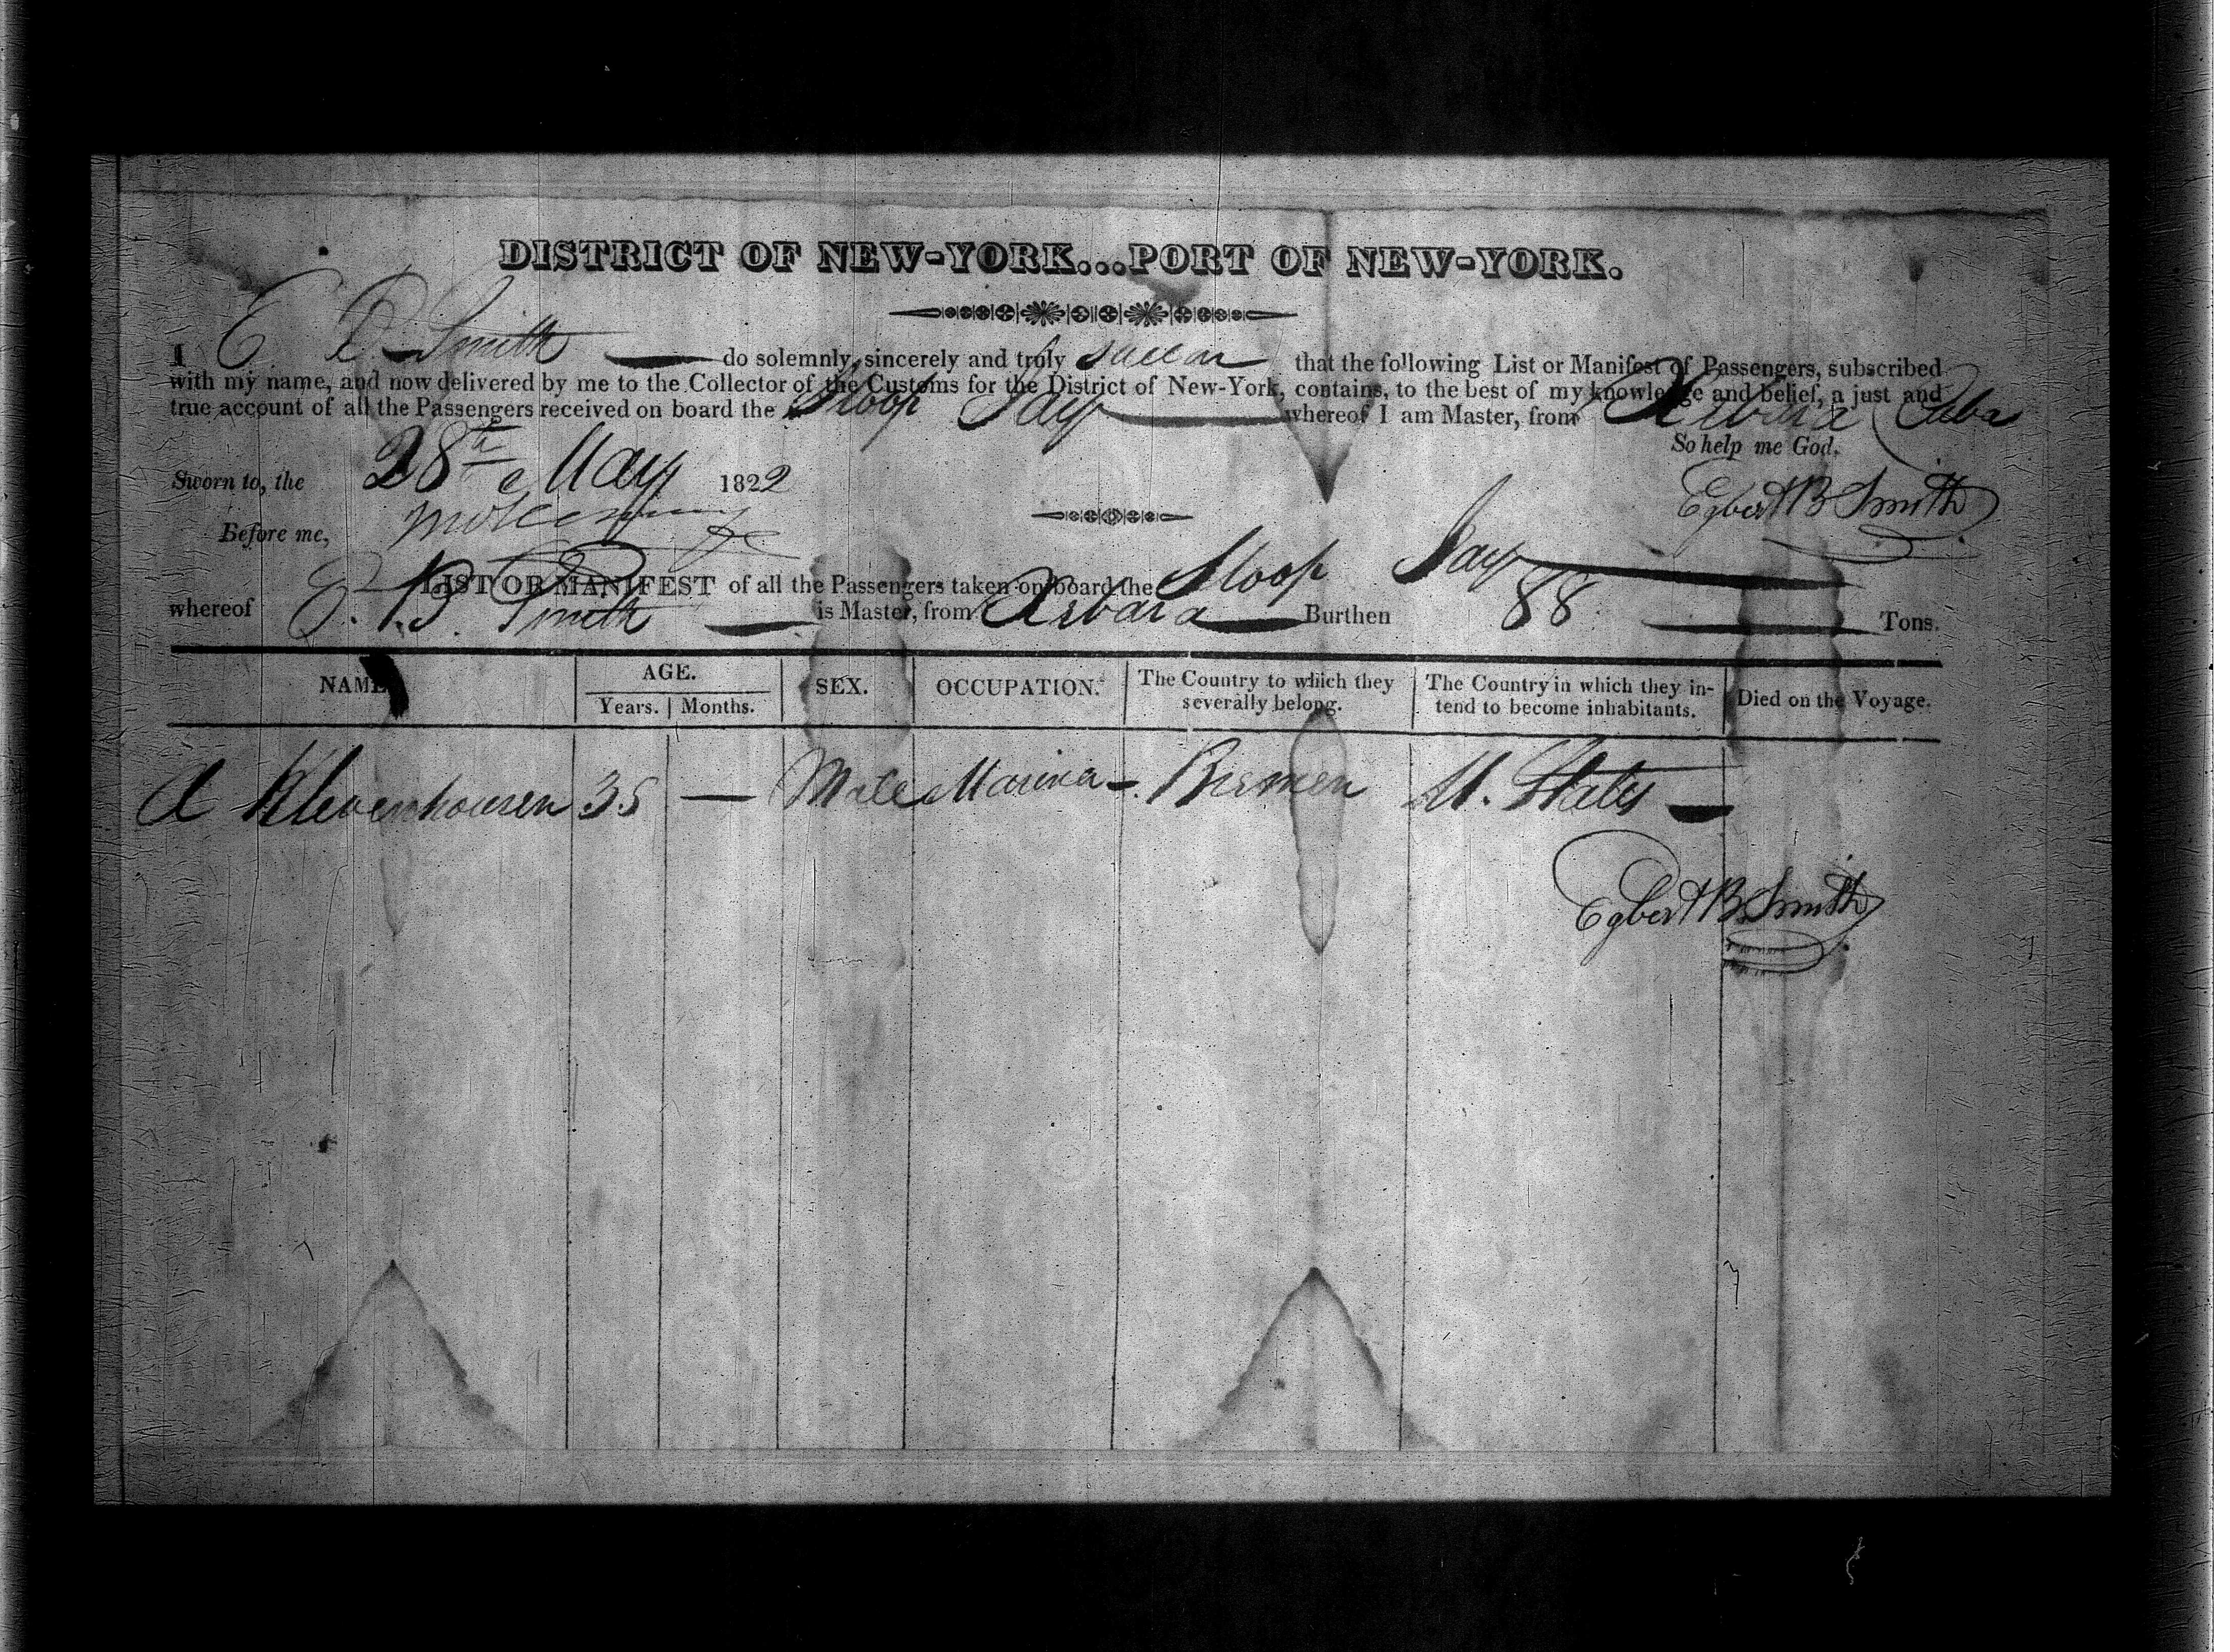 DISTRICT OF NEW-YORK...PORT OF NEW-YORK.
I E B Smith do solemnly, sincerely and truly swear that the following List or Manifest of Passengers, subscribed
with my name, and now delivered by me to the Collector of the Customs for the District of New-York, contains, to the best of my knowledge and belief, a just and
true account of all the Passengers received on board the Sloop Jay whereof I am Master, from Xibara Cuba
So help me God.
Sworn to, the 28th May 1822
Egbert B Smith
Before me,
LIST OR MANIFEST of all the Passengers taken on board the Sloop Jay
whereof E. B. Smith is Master, from Xibara Burthen 88 Tons.
NAME AGE. SEX. OCCUPATION. The Country to which they severally belong. The Country in which they intend to become inhabitants. Died on the Voyage.
Years. Months.
A Klevenhousen 35 — Male Marina - Bremen U. States
Egbert B. Smith